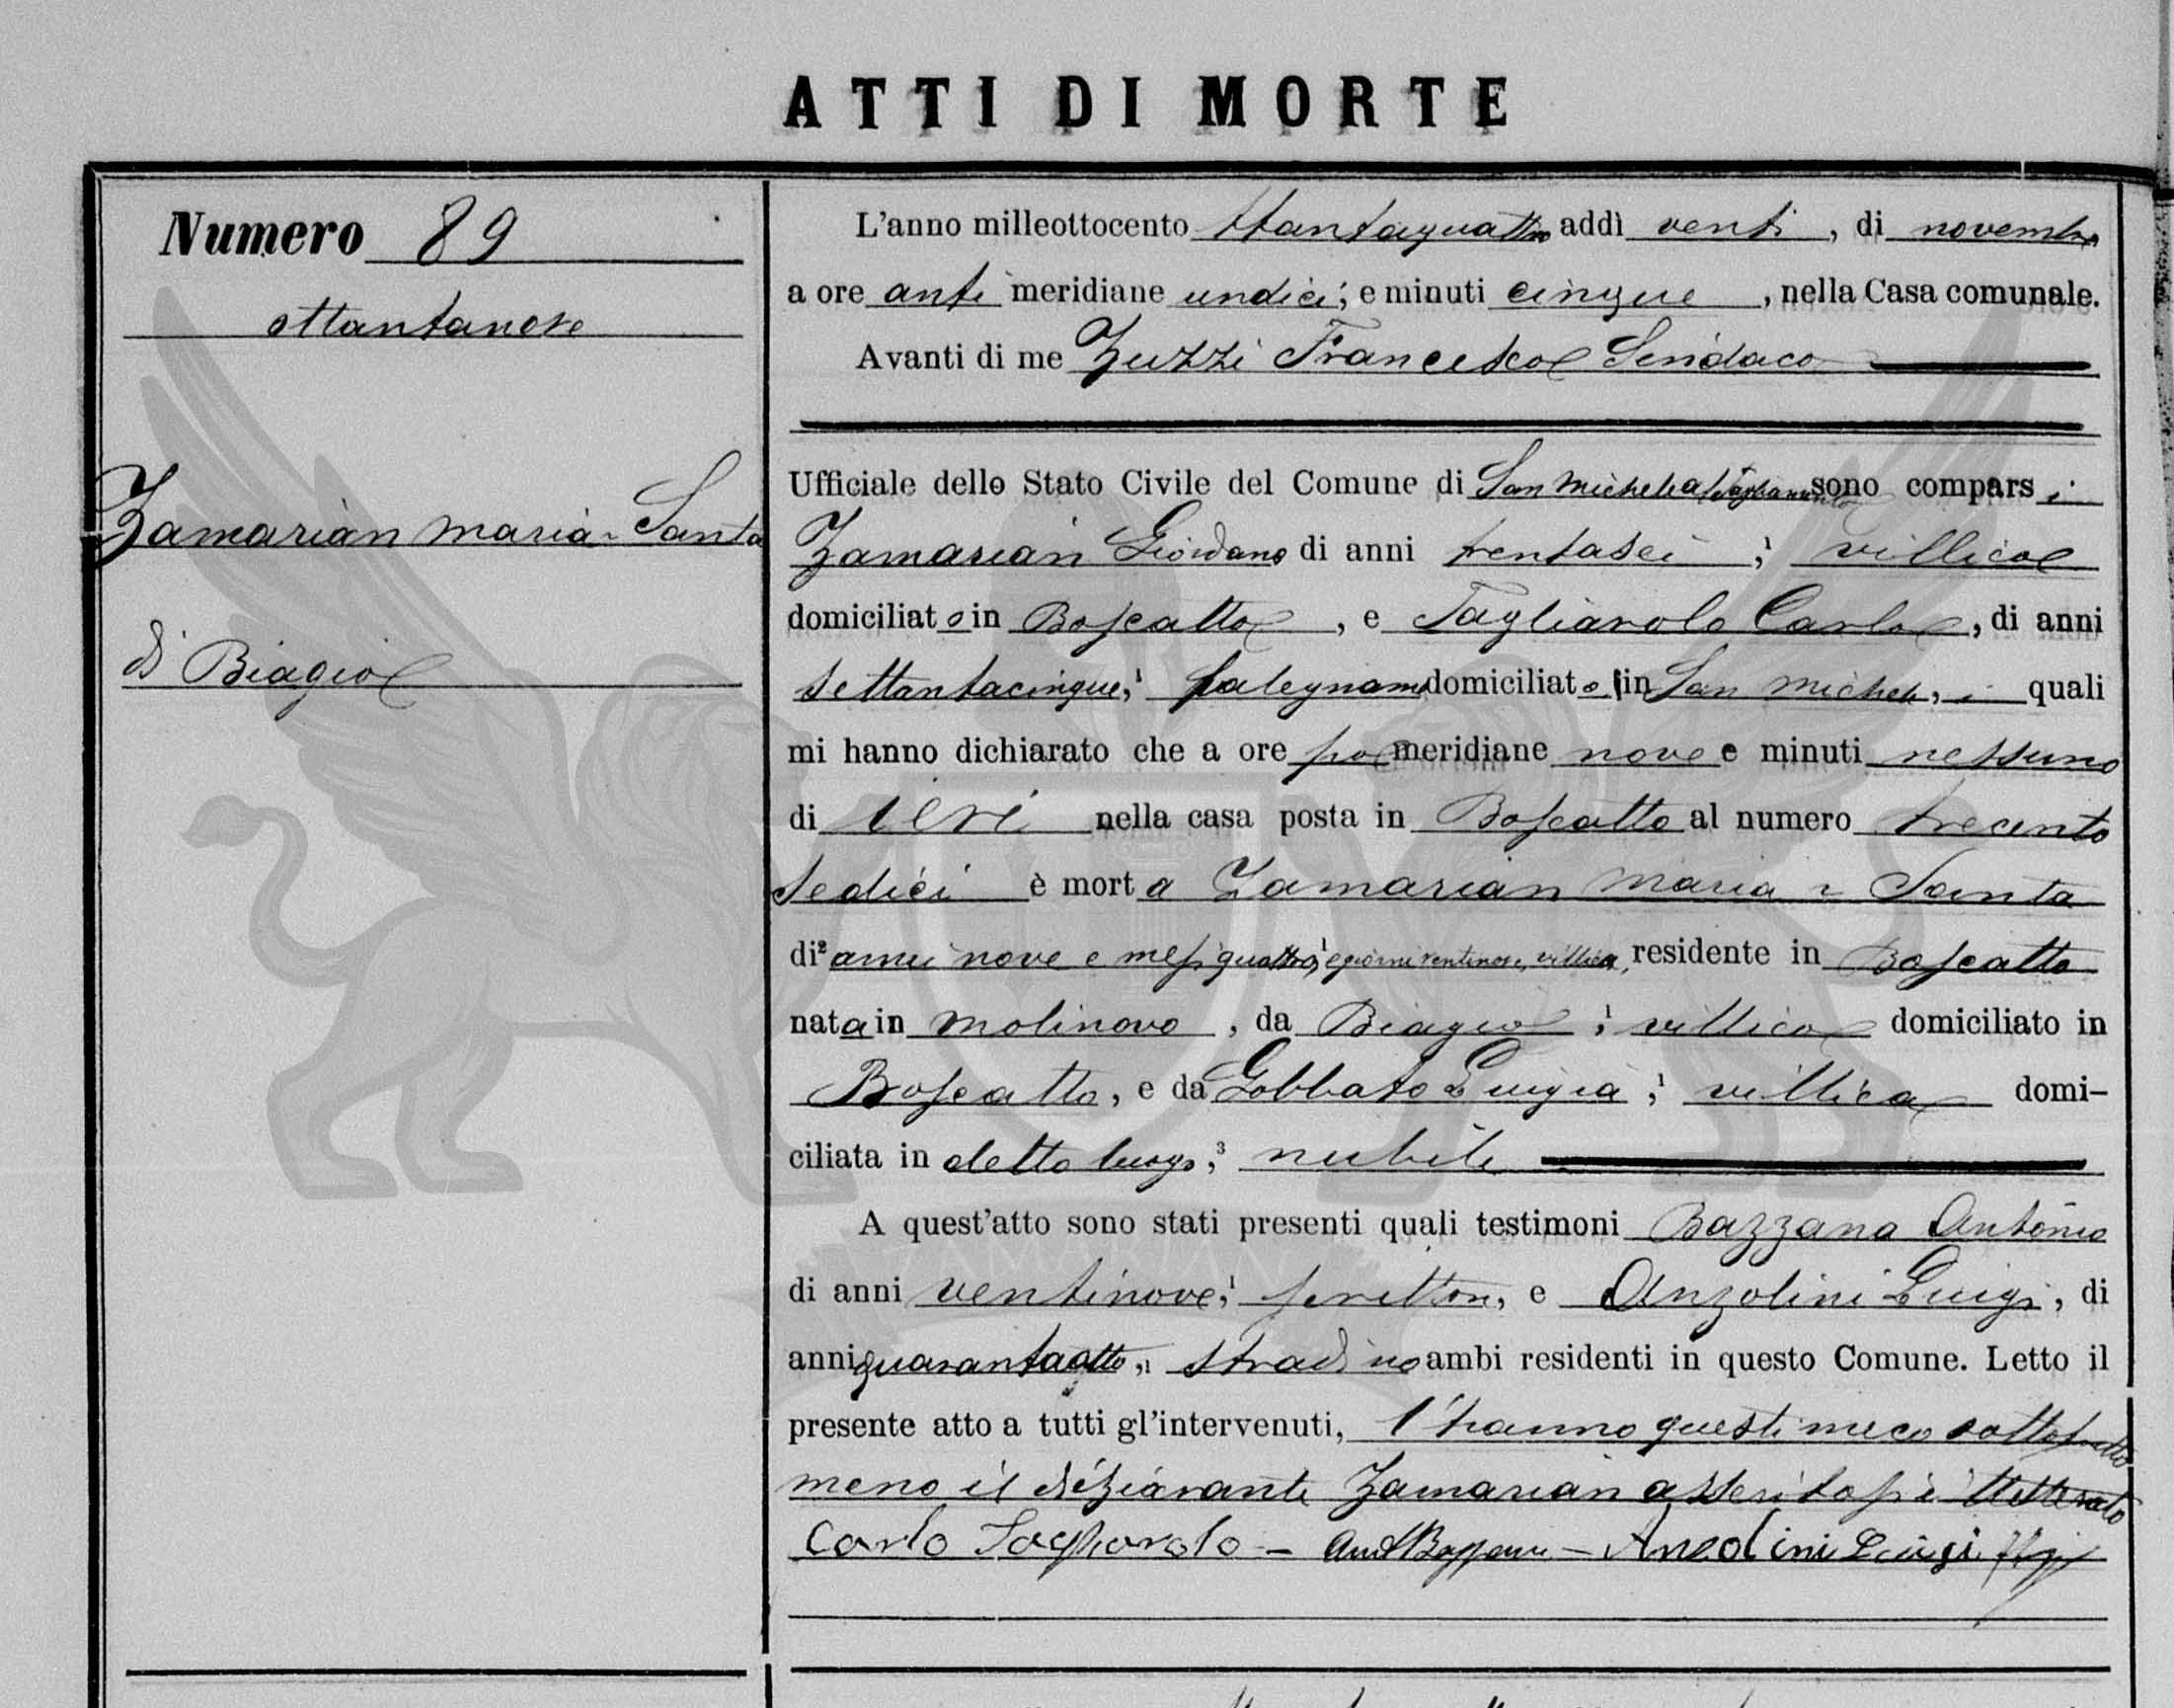 ATTI DI MORTE
Numero 89
ottantanove
Zamarian Maria-Santa
di Biagio
L'anno milleottocento ottantaquattro addì venti, di novembre
a ore anti meridiane undici, e minuti cinque, nella Casa comunale.
Avanti di me Zuzzi Francesco Sindaco
Ufficiale dello Stato Civile del Comune di San Michele al Tagliamento sono comparsi
Zamarian Giordano di anni trentasei,¹ villico
domiciliato in Boscatto, e Tagliarolo Carlo, di anni
settantacinque,¹ falegname domiciliato in San Michele, i quali
mi hanno dichiarato che a ore po meridiane nove e minuti nessuno
di ieri nella casa posta in Boscatto al numero trecento
sedici è morta Zamarian Maria-Santa
di² anni nove e mesi quattro, e giorni ventinove, villica, residente in Boscatto
nata in Molinovo, da Biagio,¹ villico domiciliato in
Boscatto, e da Gobbato Luigia,¹ villica domi-
ciliata in detto luogo,³ nubile
A quest'atto sono stati presenti quali testimoni Bazzana Antonio
di anni ventinove,¹ scrittore, e Anzolini Luigi, di
anni quarantaotto,¹ stradino ambi residenti in questo Comune. Letto il
presente atto a tutti gl'intervenuti, l'hanno questi meco sottoscritto
meno il dichiarante Zamarian asseritosi illetterato
Carlo Tagliarolo - Ant Bazzana - Anzolini Luigi
ZAMARIAN